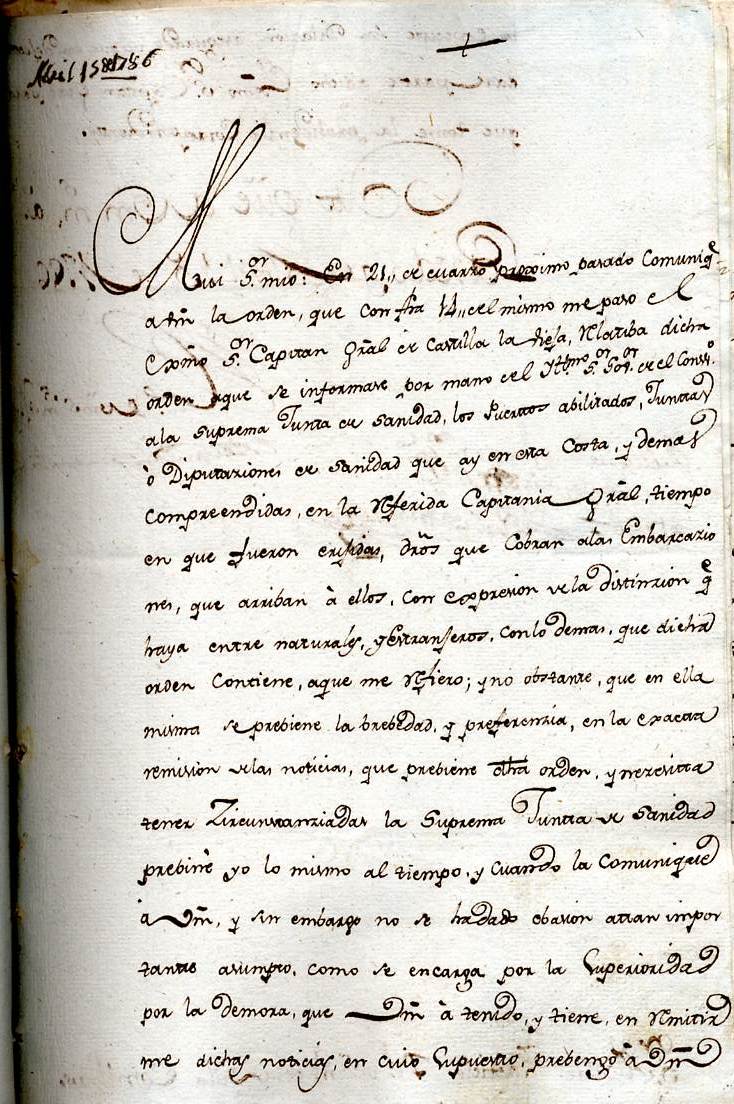 Abril 15 de 1786
Mui S.or mio: En 21,, de Marzo proximo pasado Comuniq.e
a Vm̃ la orden, que con fh̃a 14,, del mismo me paso el
Exc̃mo S.or Capitan Gr̃al de Castilla la Vieja, Relatiba dicha
orden aque se informase por mano del Yll.mo S.or Gov.or del Consejo
ala Suprema Junta de Sanidad, los Puertos abilitados, Juntas
ò Diputaziones de Sanidad que ay en esta Costa, y demas
compreendidas, en la Referida Capitania Gr̃al, tiempo
en que fueron erijidas, dr̃õs que Cobran alas Embarcazio
nes, que arriban à ellos, con expresion dela distinzion q.e
haya entre naturales, y Extranjeros, conlo demas, que dicha
orden Contiene, aque me Refiero; y no obstante, que en ella
misma se prebiene la brebedad, y preferenzia, en la exacta
remision delas noticias, que prebiene dh̃a orden, y nezesita
tener Zircunstanziadas la Suprema Junta de Sanidad
prebine yo lo mismo al tiempo, y Cuando la Comuniqué
à Vm̃, y sin embargo no se hadado ebasion atan impor
tante asumpto, como se encarga por la Superioridad
por la demora, que Vm̃ à tenido, y tiene, en Remitir
me dichas noticias, en cuio Supuesto, prebengo à Vm̃